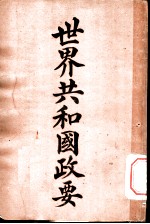 世界共和國政要